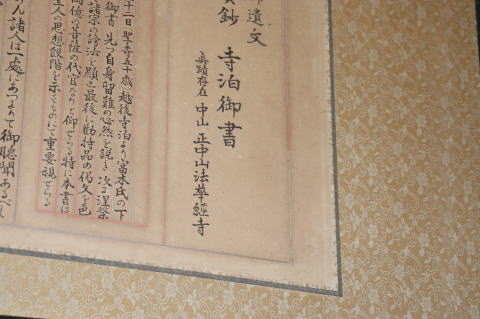 遺文
鈔 寺泊御書
眞蹟存在 中山 正中山法華經寺
十二日 聖寿五十歳 越後寺泊より富木氏の下
御書 先つ自身留難の必然と説き 次に涅槃
諸宗の謗法を顕し 最後に勧持品の偈文を色
億の菩薩の代官なりと仰せらる 特に本書は
聖人の思想段階を示すものにて重要視せらる
諸人は一處にあつまりて御聴聞あるべし